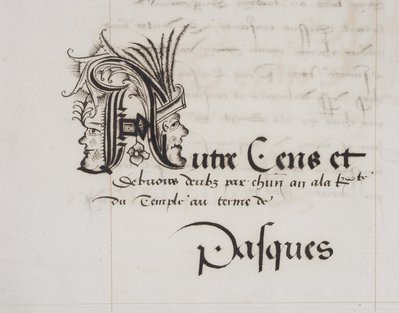 Autre Cens et
debvoirs deubz par chun an a la
du Temple au terme de
Pasques